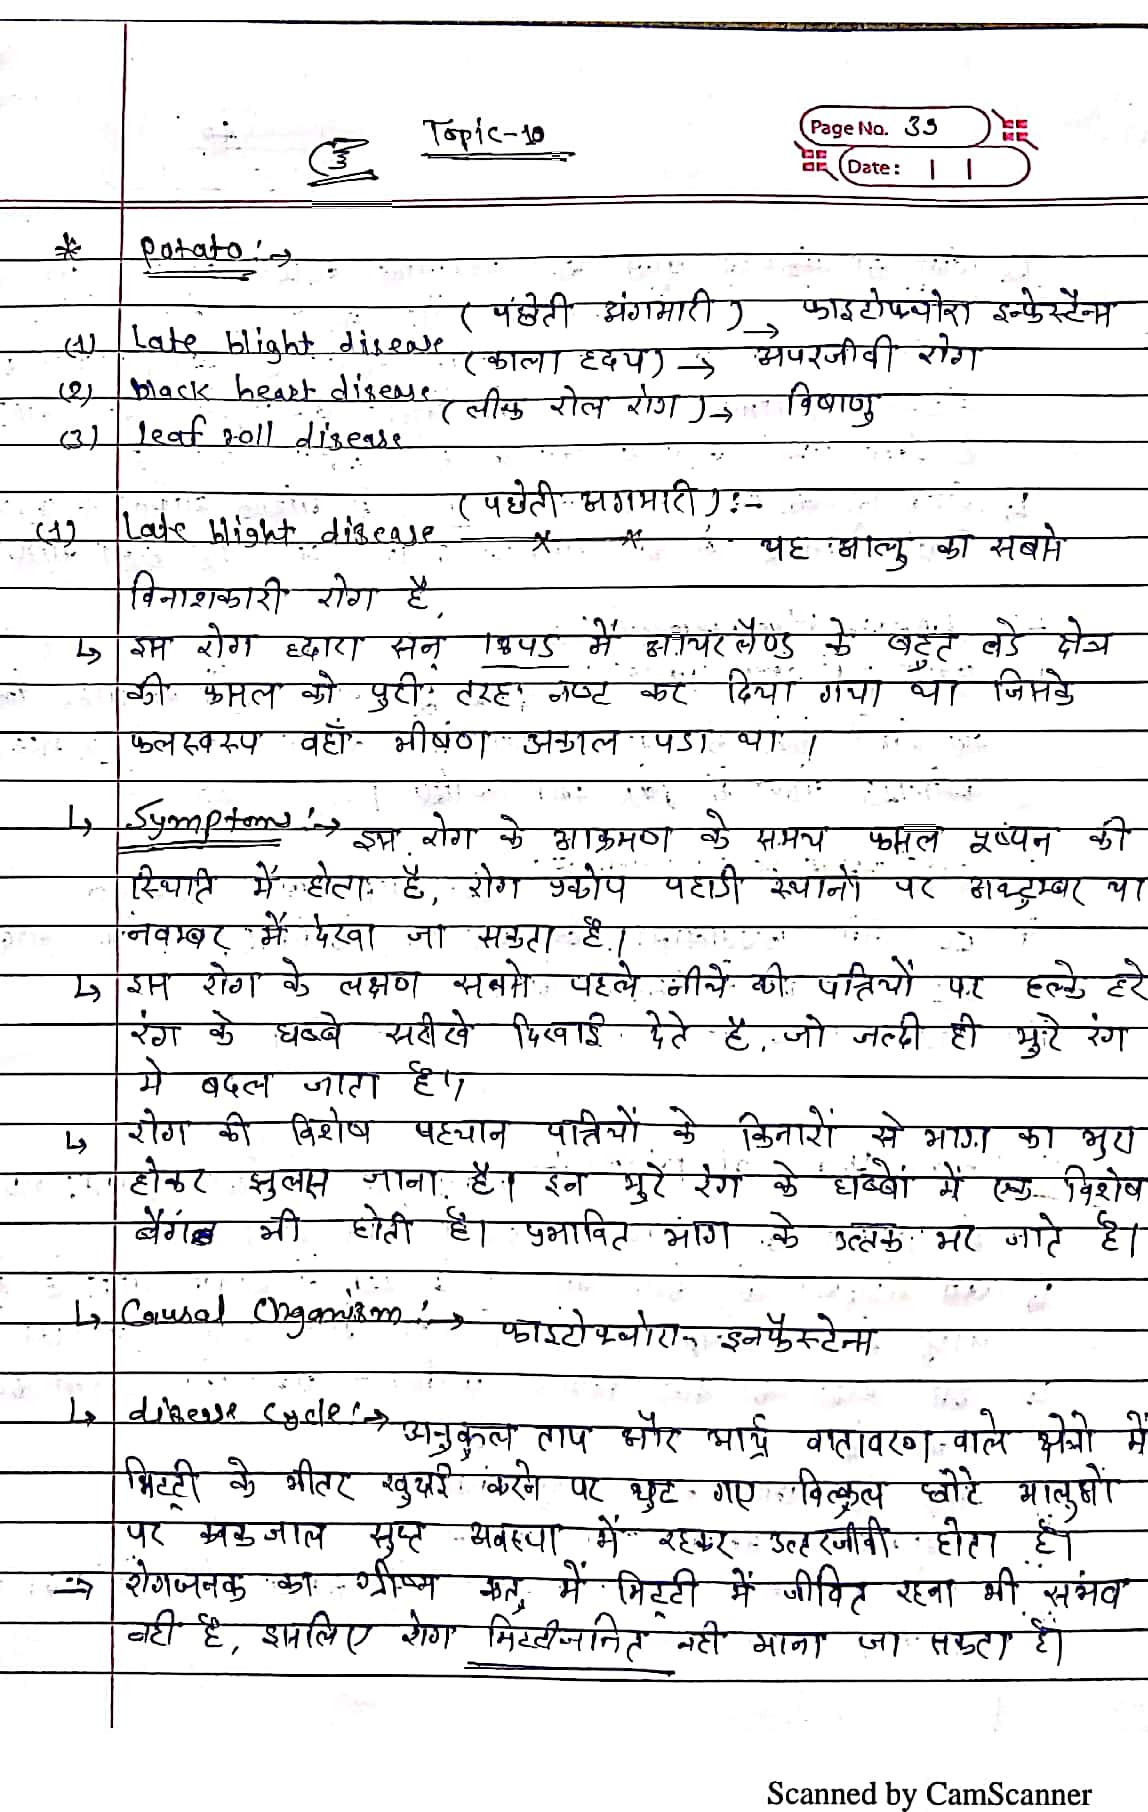 Topic-10
3
Page No. 39
Date: | |
* Potato:→
(1) Late blight disease (पछेती अंगमारी) → फाइटोफ्थोरा इन्फेस्टैन्स
(2) black heart disease (काला हृदय) → अपरजीवी रोग
(3) leaf roll disease (लीफ रोल रोग) → विषाणु
(1) Late blight disease (पछेती अगमारी):- यह आलु का सबसे
विनाशकारी रोग है,
↳ इस रोग द्दारा सन् में आयरलैण्ड के बहुत बडे क्षेत्र
की फसल को पुरी तरह नष्ट कर दिया गया था जिसके
फलस्वरुप वहाँ भीषण अकाल पडा था।
↳ Symptoms:→ इस रोग के आक्रमण के समय फसल पुष्पन की
स्थिति में होता है, रोग प्रकोप पहाडी स्थानों पर अक्टुम्बर या
नवम्बर में देखा जा सकता है।
↳ इस रोग के लक्षण सबसे पहले नीचे की पतियों पर हल्के हरे
रंग के धब्बे सरीखे दिखाई देते है, जो जल्दी ही भुरे रंग
मे बदल जाता है।
↳ रोग की विशेष पहचान पतियों के किनारों से भाग का भुरा
होकर झुलस जाना है। इन भुरे रंग के धब्बों में एक विशेष
बैगंनी भी होती है। प्रभावित भाग के उत्तक मर जाते है।
↳ Causal Organism:→ फाइटोफ्थोरा इनफैस्टेन्स
↳ disease cycle:→ अनुकुल ताप और आर्द्र वातावरण वाले क्षेत्रो में
मिटटी के भीतर खुदाई करने पर छुट गए बिल्कुल छोटे आलुओं
पर कवकजाल सुप्त अवस्था में रहकर उत्तरजीवी होता है।
→ रोगजनक का ग्रीष्म ऋतु में मिटटी में जीवित रहना भी संभव
नही है, इसलिए रोग मिटटीजनित नही माना जा सकता है।
Scanned by CamScanner